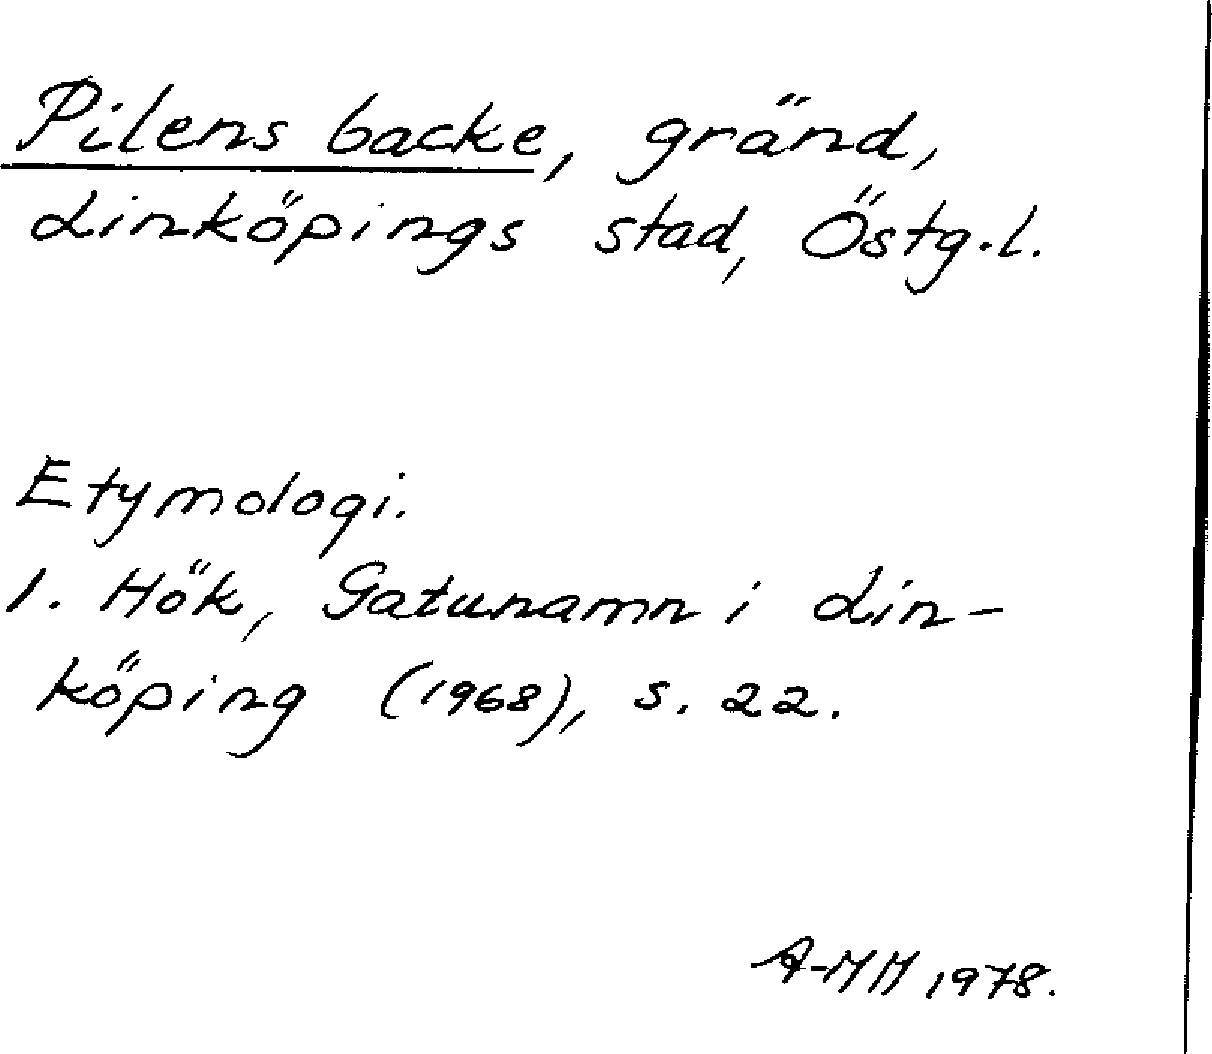 Pilens backe, gränd,
Linköpings stad, Östg.l.
Etymologi.
1. Hök, Gatunamn i Lin-
köping (1968), s. 22.
A-MH 1978.